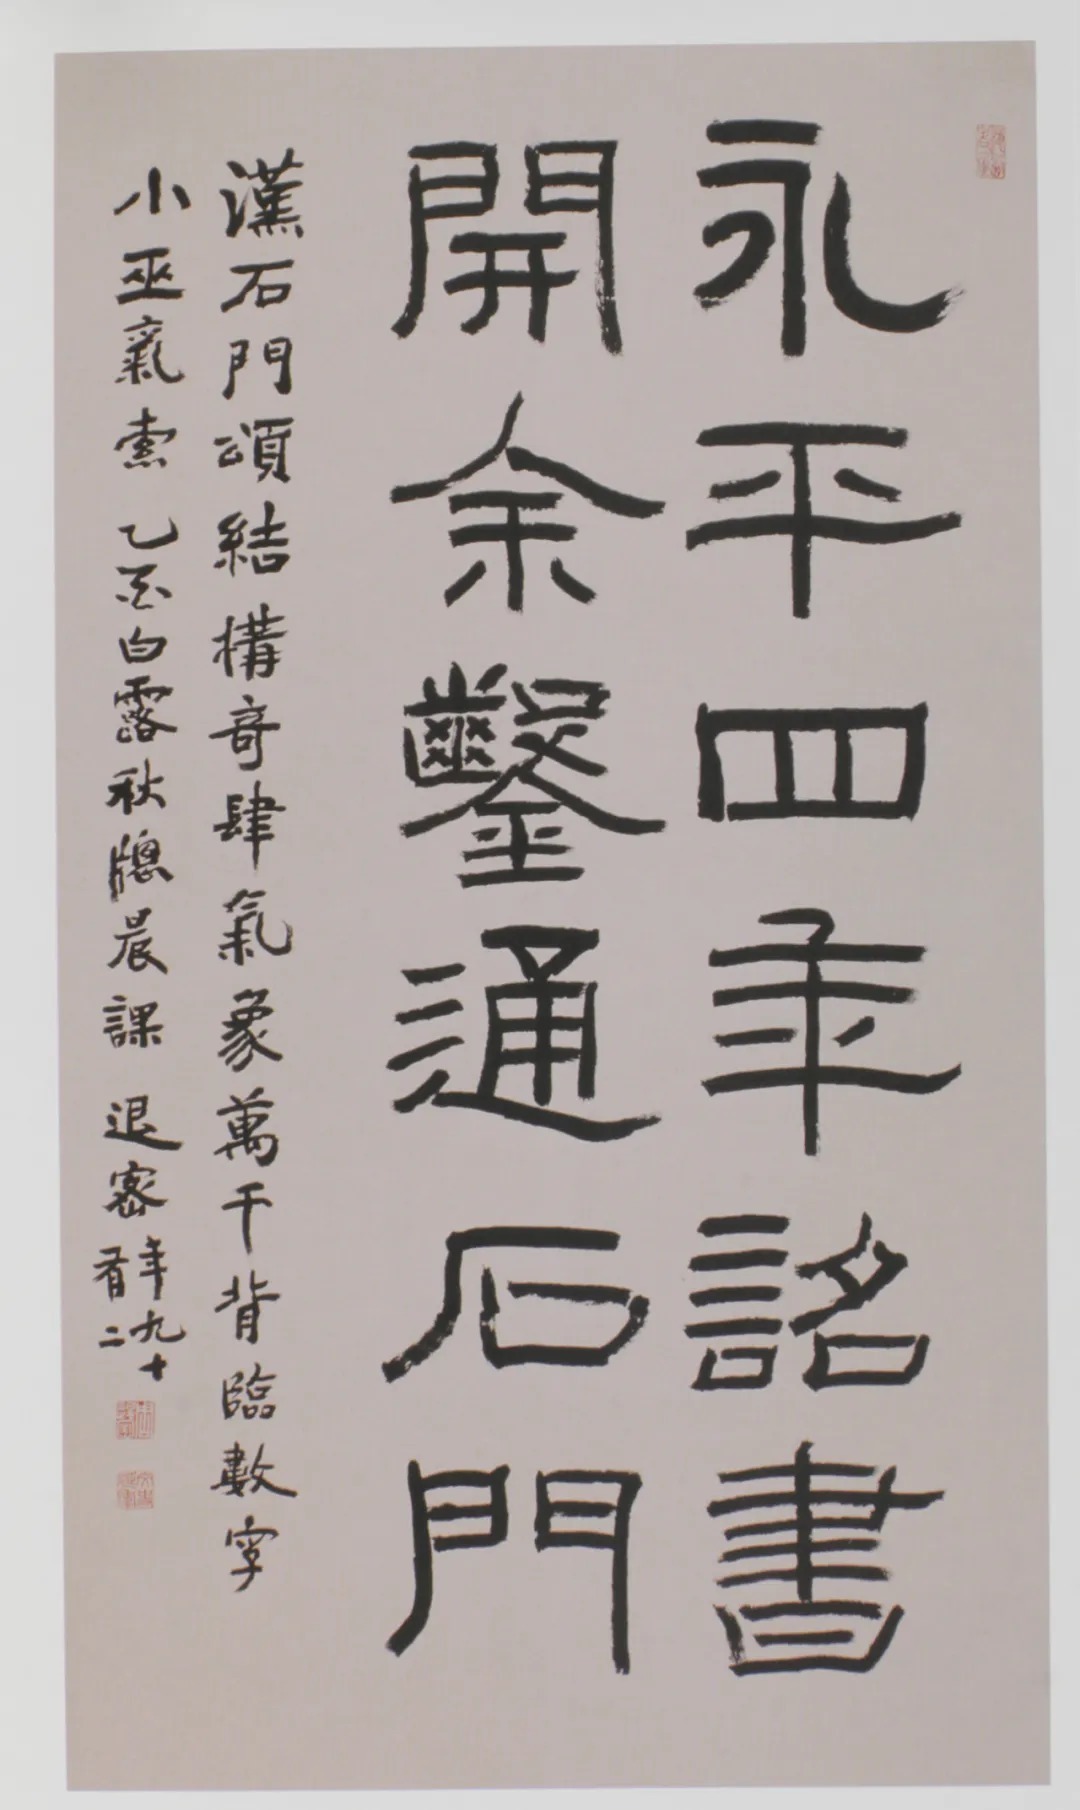 永平四年詔書
開余鑿通石門
漢石門頌結構奇肆氣象萬千背臨數字
小巫氣索 乙酉白露秋牕晨課 退密年九十有二